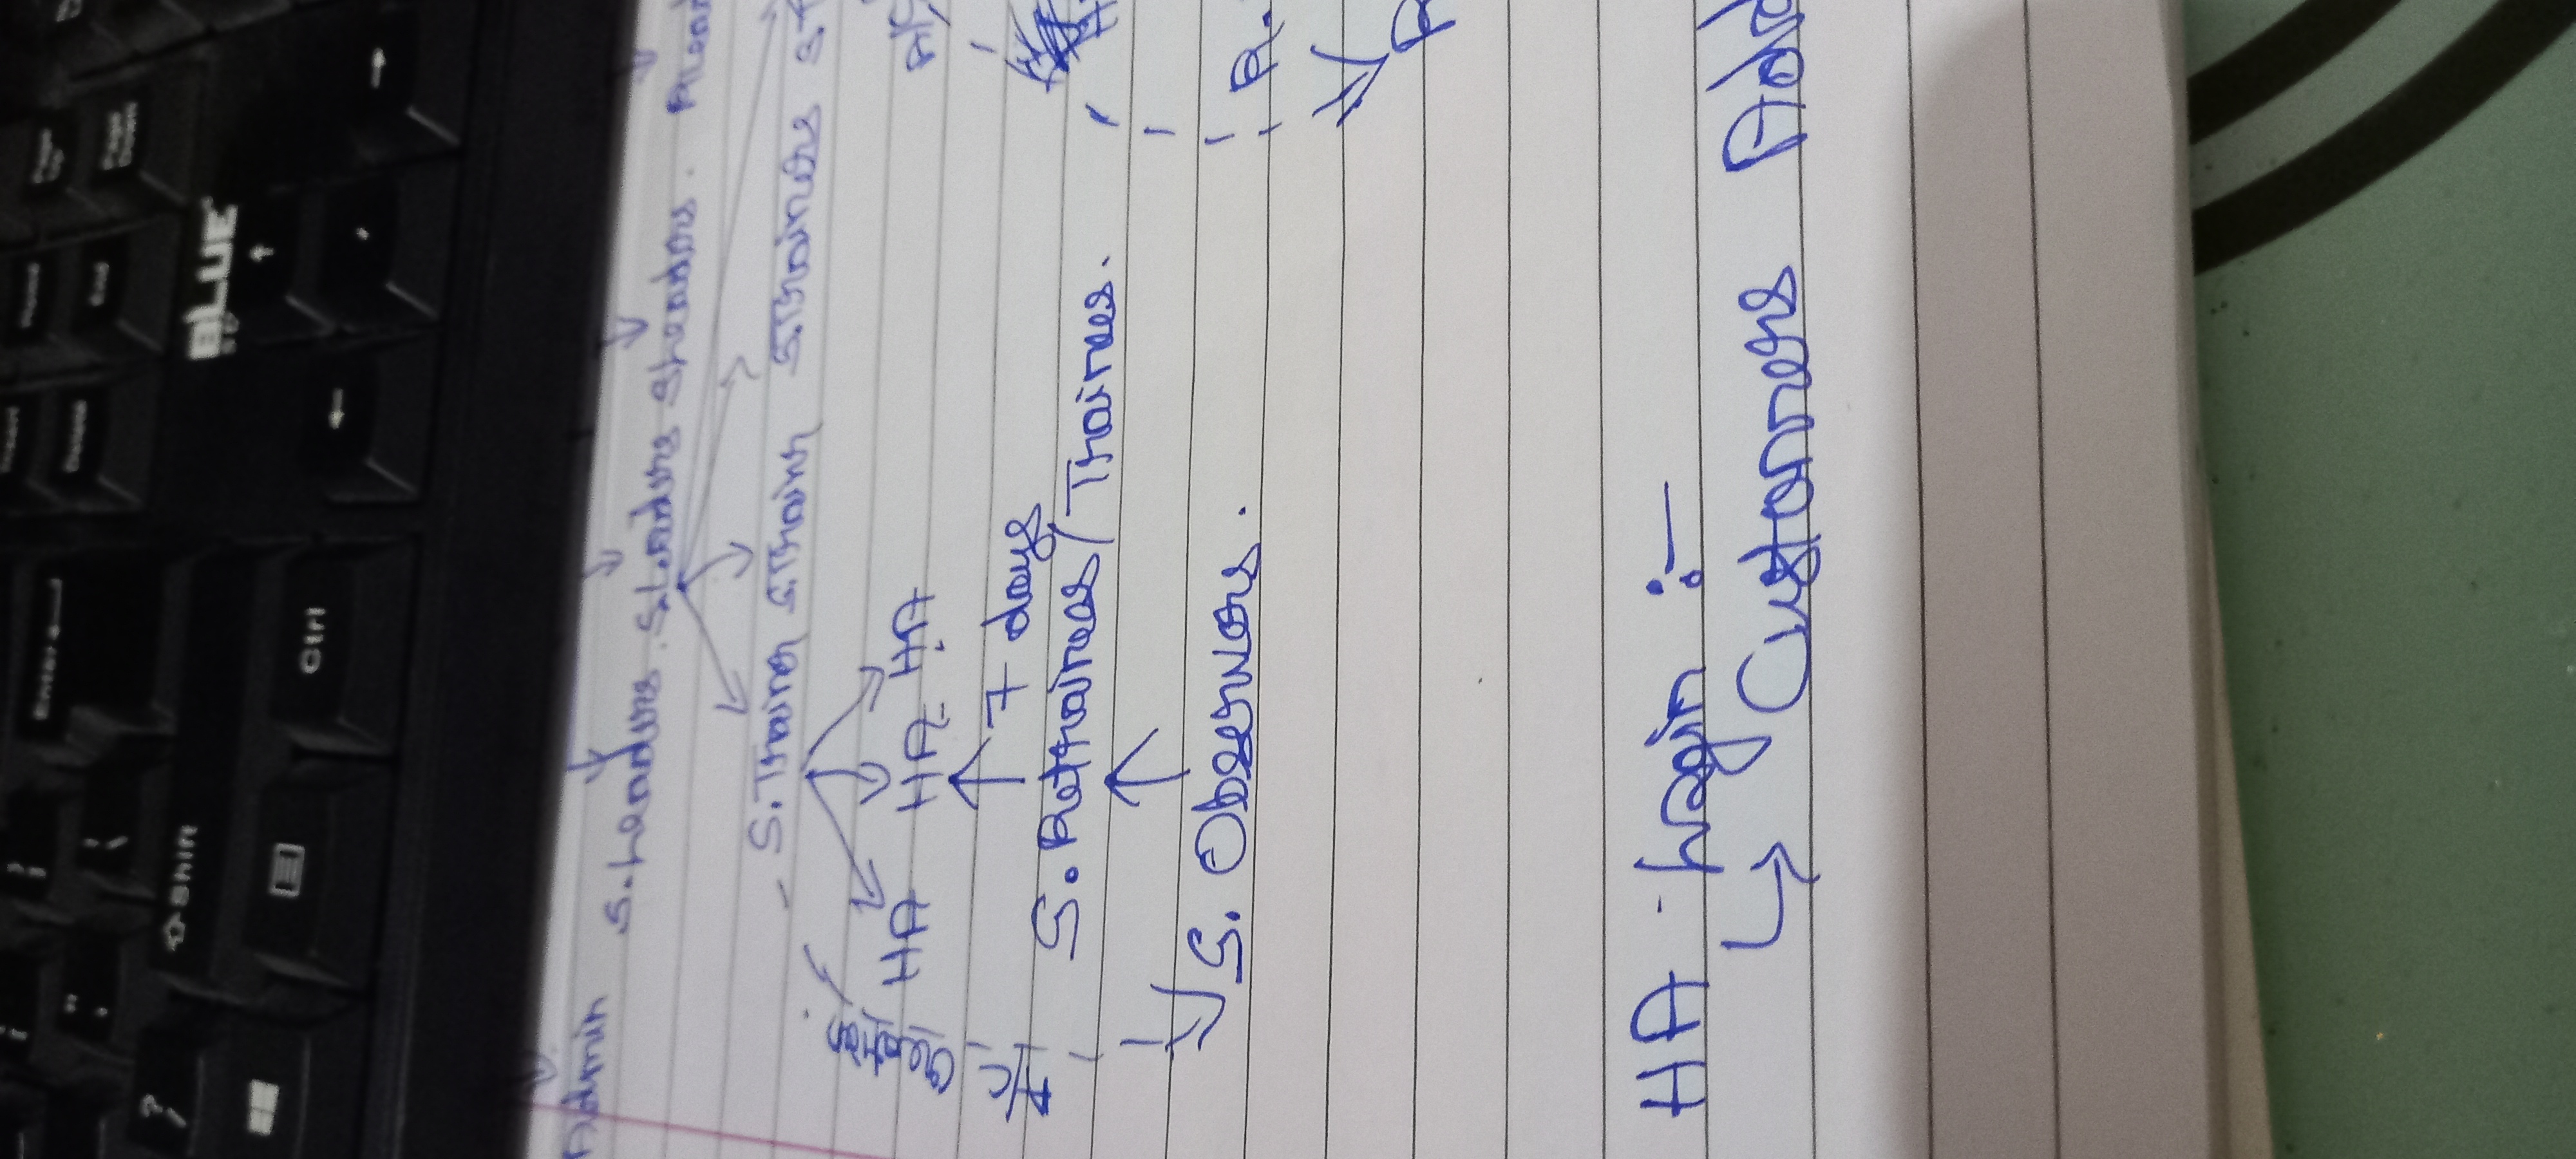 Enter
Insert
Home
Page Up
Delete
End
Page Down
" '
| \
? /
Shift
BLUE
Ctrl
Admin S.Leaders. S.Leaders SLeaders.
S.Trainer S.Trainr S.Trainers S.T
HA HA HA
A/C Creation.
7 days
S. Retrainees/Trainees.
S. Observers.
R.
R
HA Login :-
Customers Add